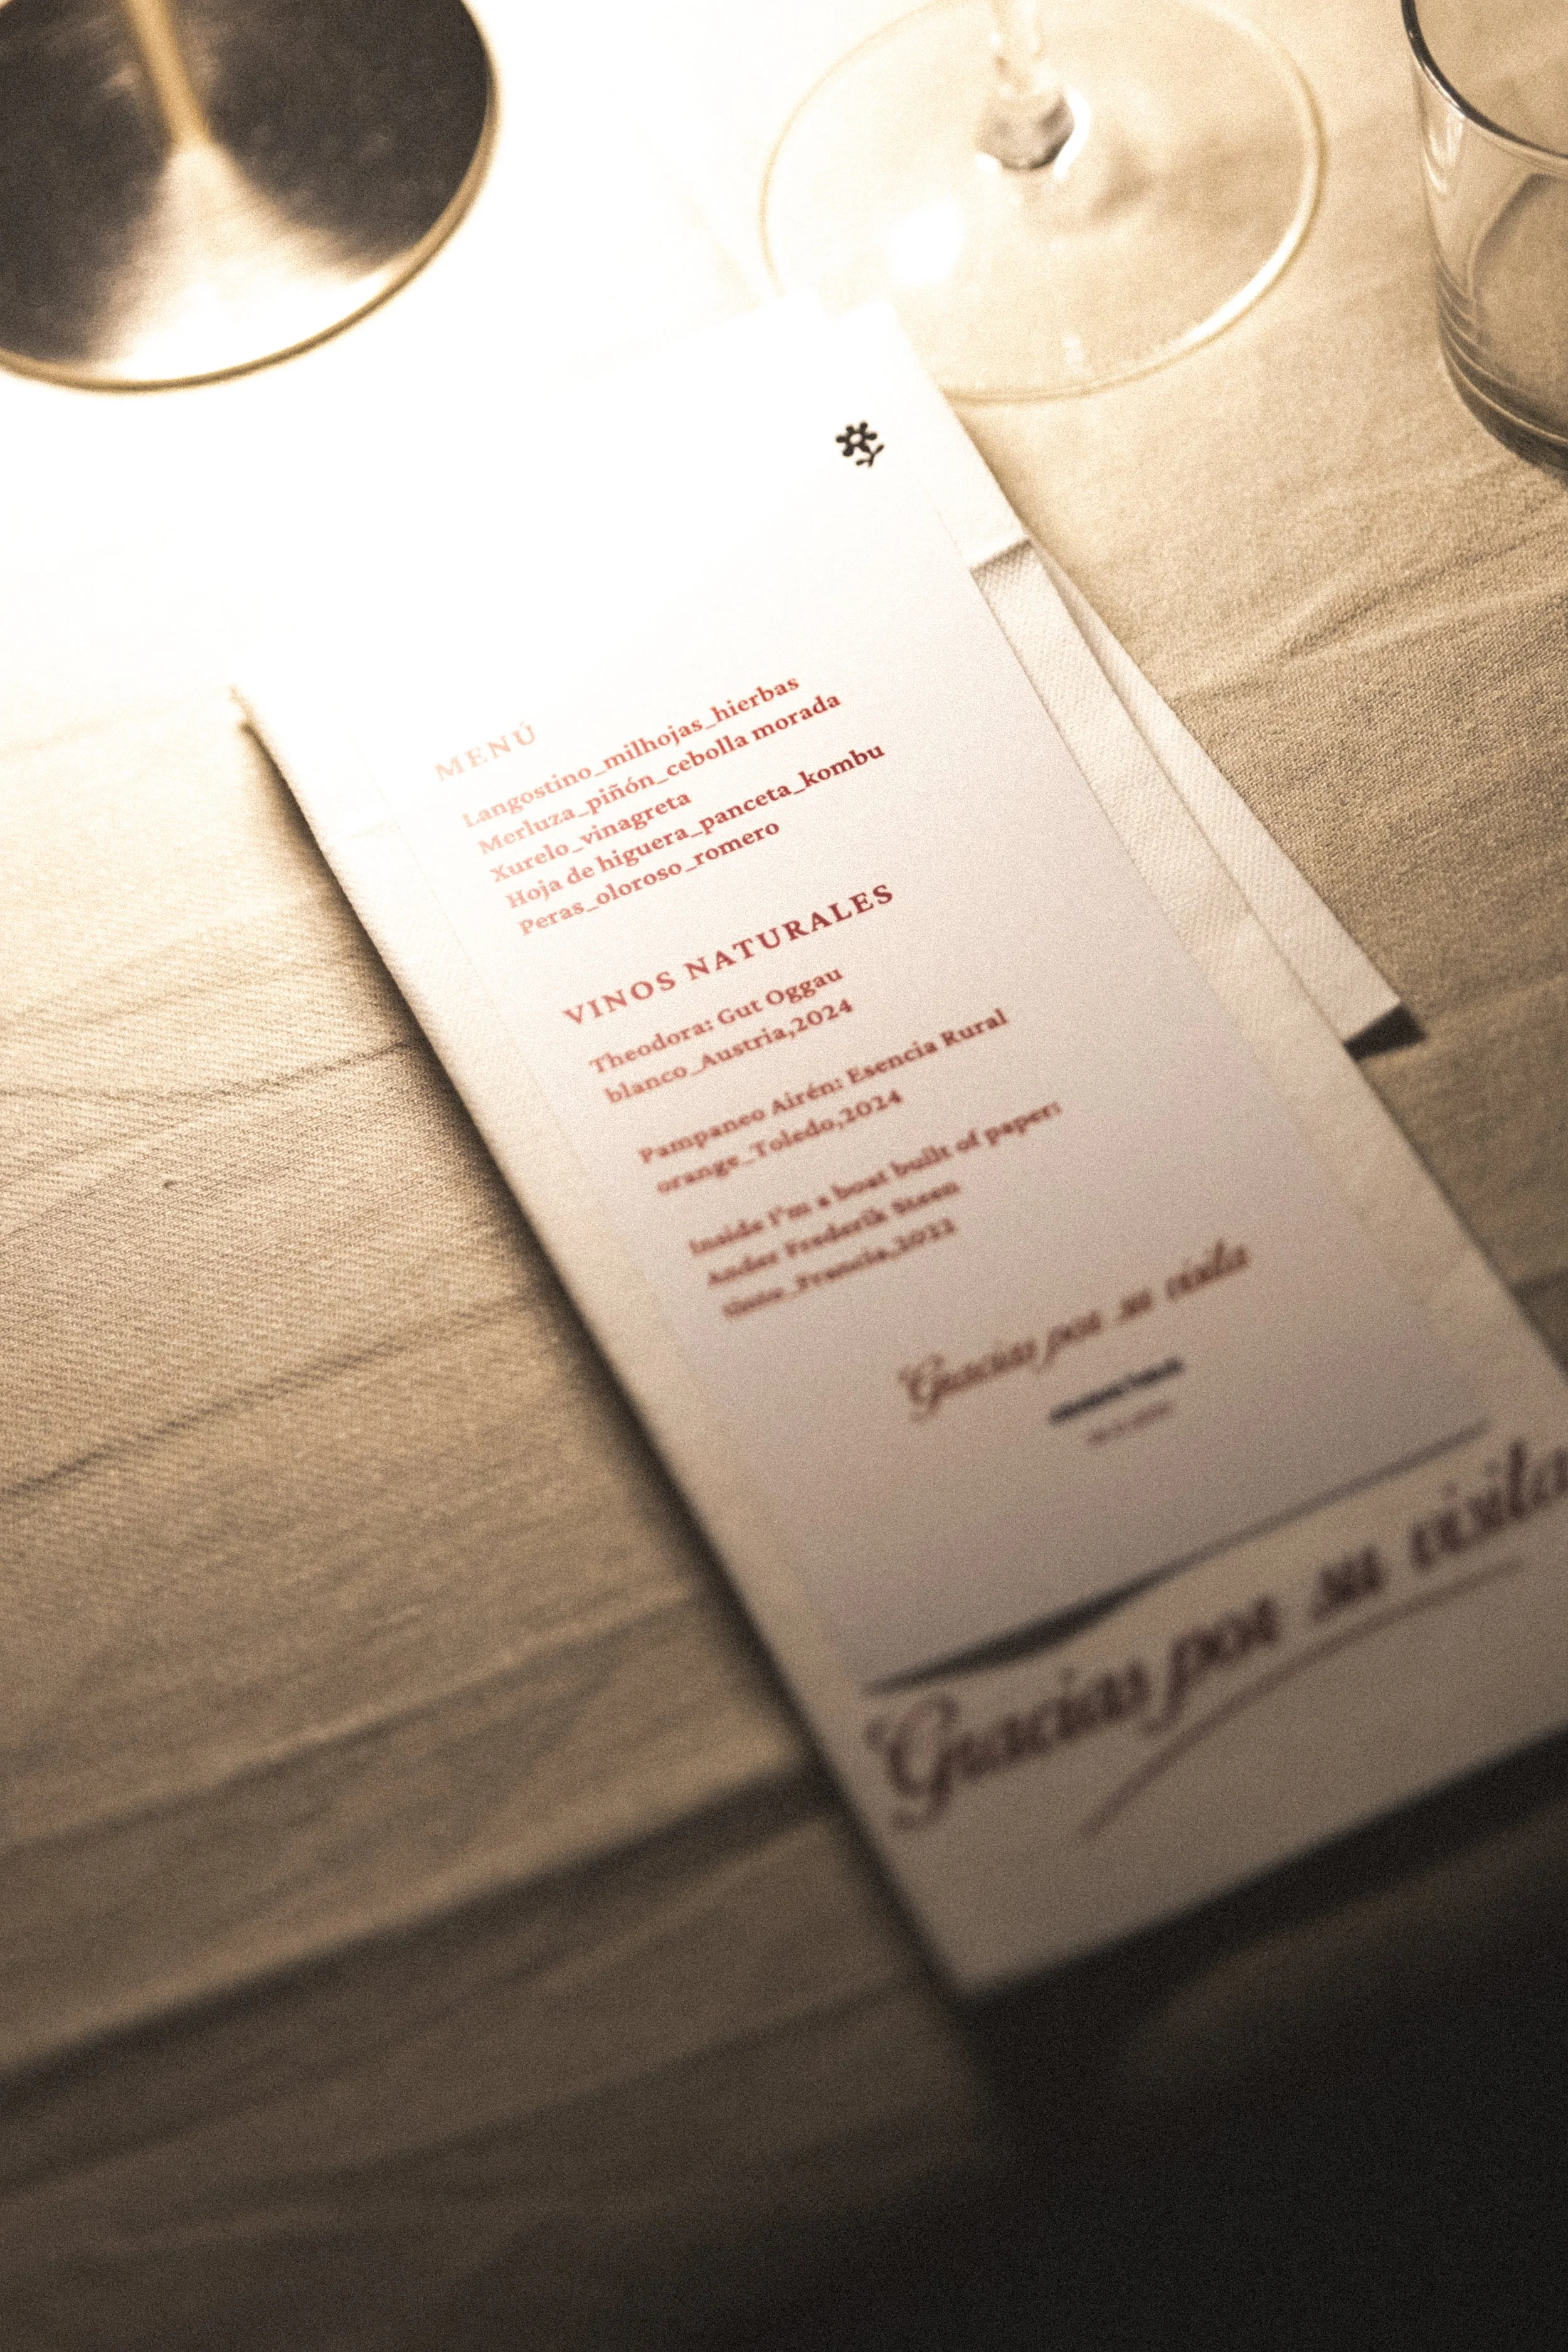 MENÚ
Langostino_milhojas_hierbas
Merluza_piñón_cebolla morada
Xurelo_vinagreta
Hoja de higuera_panceta_kombu
Peras_oloroso_romero
VINOS NATURALES
Theodora: Gut Oggau
blanco_Austria,2024
Pampaneo Airén: Esencia Rural
orange_Toledo,2024
Inside I'm a boat built of paper:
Ander Frederik Steen
tinto_Francia,2022
Gracias por su visita
Gracias por su visita